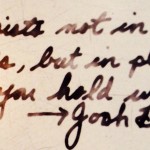 ists not in
, but in pl
you hold w
→Josh